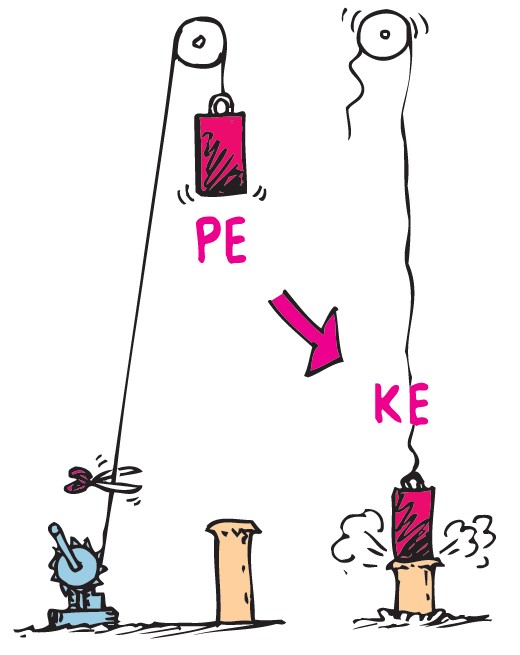 PE
KE